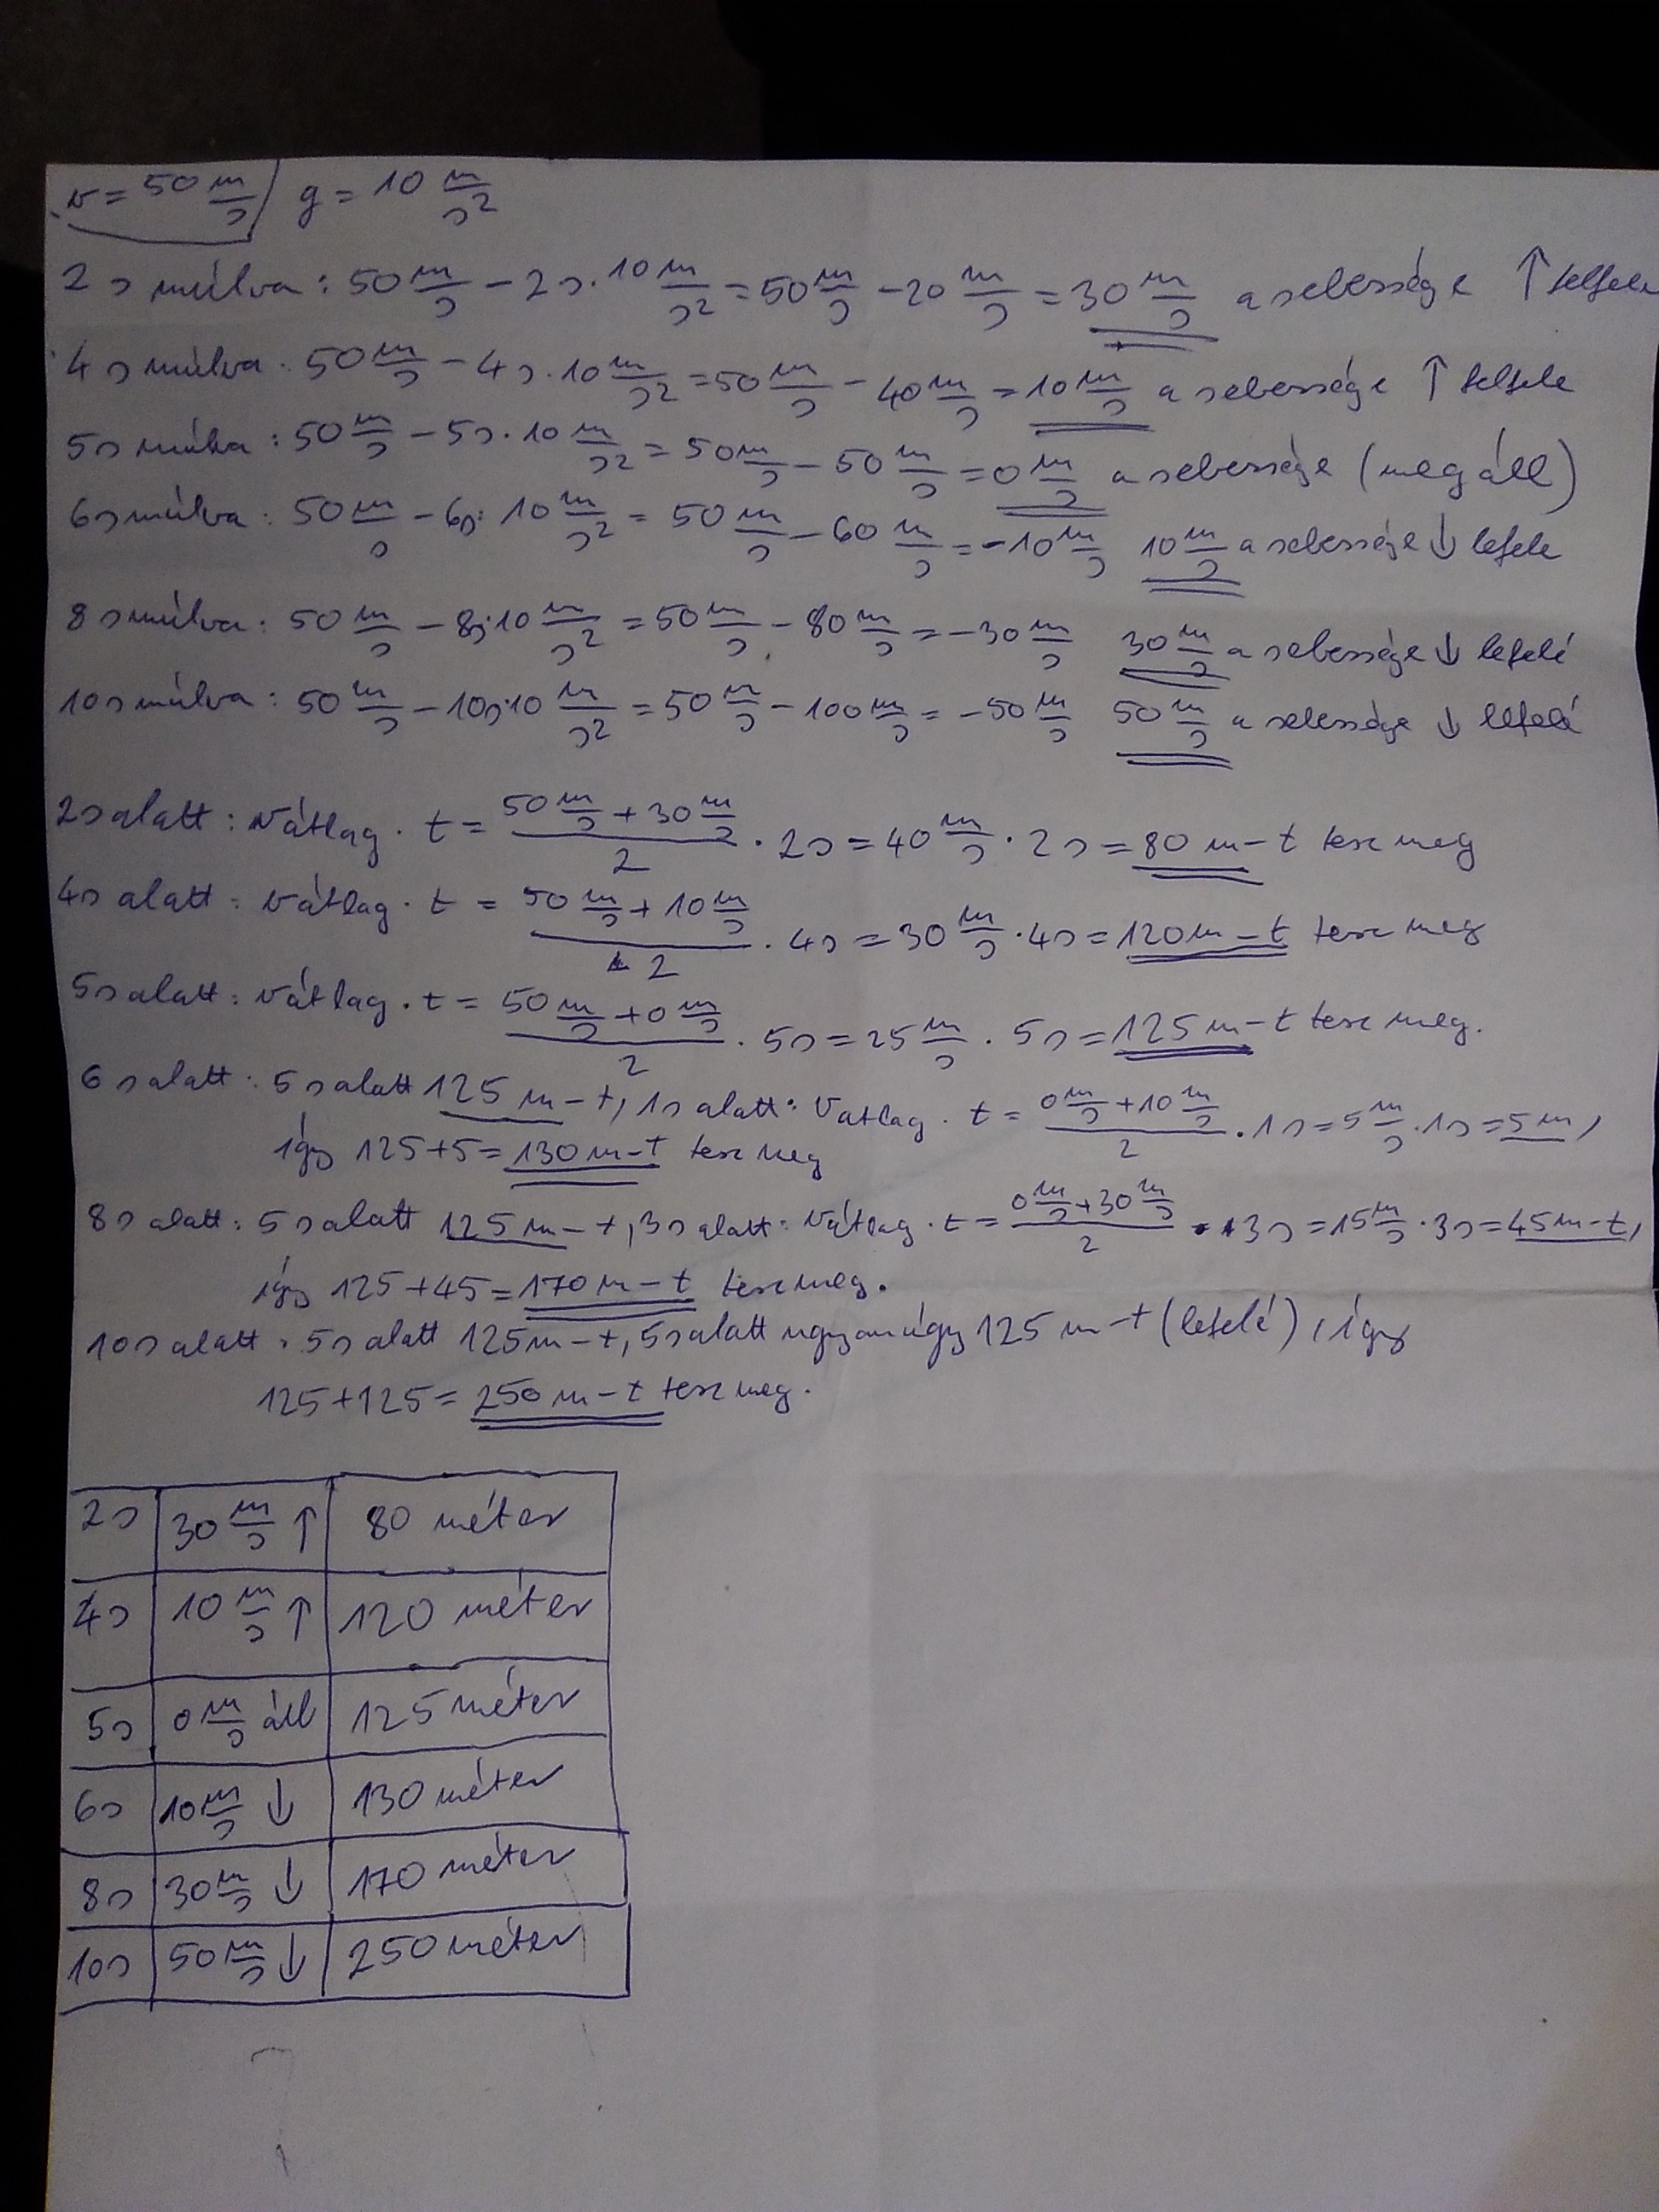 v = 50 m/s g = 10 m/s²
2s múlva: 50 m/s - 2s · 10 m/s² = 50 m/s - 20 m/s = 30 m/s a sebessége ↑ felfele
4s múlva: 50 m/s - 4s · 10 m/s² = 50 m/s - 40 m/s = 10 m/s a sebessége ↑ felfele
5s múlva: 50 m/s - 5s · 10 m/s² = 50 m/s - 50 m/s = 0 m/s a sebessége (megáll)
6s múlva: 50 m/s - 6s · 10 m/s² = 50 m/s - 60 m/s = -10 m/s 10 m/s a sebessége ↓ lefele
8s múlva: 50 m/s - 8s · 10 m/s² = 50 m/s - 80 m/s = -30 m/s 30 m/s a sebessége ↓ lefelé
10s múlva: 50 m/s - 10s · 10 m/s² = 50 m/s - 100 m/s = -50 m/s 50 m/s a sebessége ↓ lefelé
2s alatt: vátlag · t = (50 m/s + 30 m/s)/2 · 2s = 40 m/s · 2s = 80 m-t tesz meg
4s alatt: vátlag · t = (50 m/s + 10 m/s)/2 · 4s = 30 m/s · 4s = 120 m-t tesz meg
5s alatt: vátlag · t = (50 m/s + 0 m/s)/2 · 5s = 25 m/s · 5s = 125 m-t tesz meg.
6s alatt: 5s alatt 125 m-t, 1s alatt: vátlag · t = (0 m/s + 10 m/s)/2 · 1s = 5 m/s · 1s = 5 m,
így 125+5 = 130 m-t tesz meg
8s alatt: 5s alatt 125 m-t, 3s alatt: vátlag · t = (0 m/s + 30 m/s)/2 · 3s = 15 m/s · 3s = 45 m-t,
így 125+45 = 170 m-t tesz meg.
10s alatt: 5s alatt 125 m-t, 5s alatt ugyanúgy 125 m-t (lefelé), így
125+125 = 250 m-t tesz meg.
2s 30 m/s ↑ 80 méter
4s 10 m/s ↑ 120 méter
5s 0 m/s áll 125 méter
6s 10 m/s ↓ 130 méter
8s 30 m/s ↓ 170 méter
10s 50 m/s ↓ 250 méter